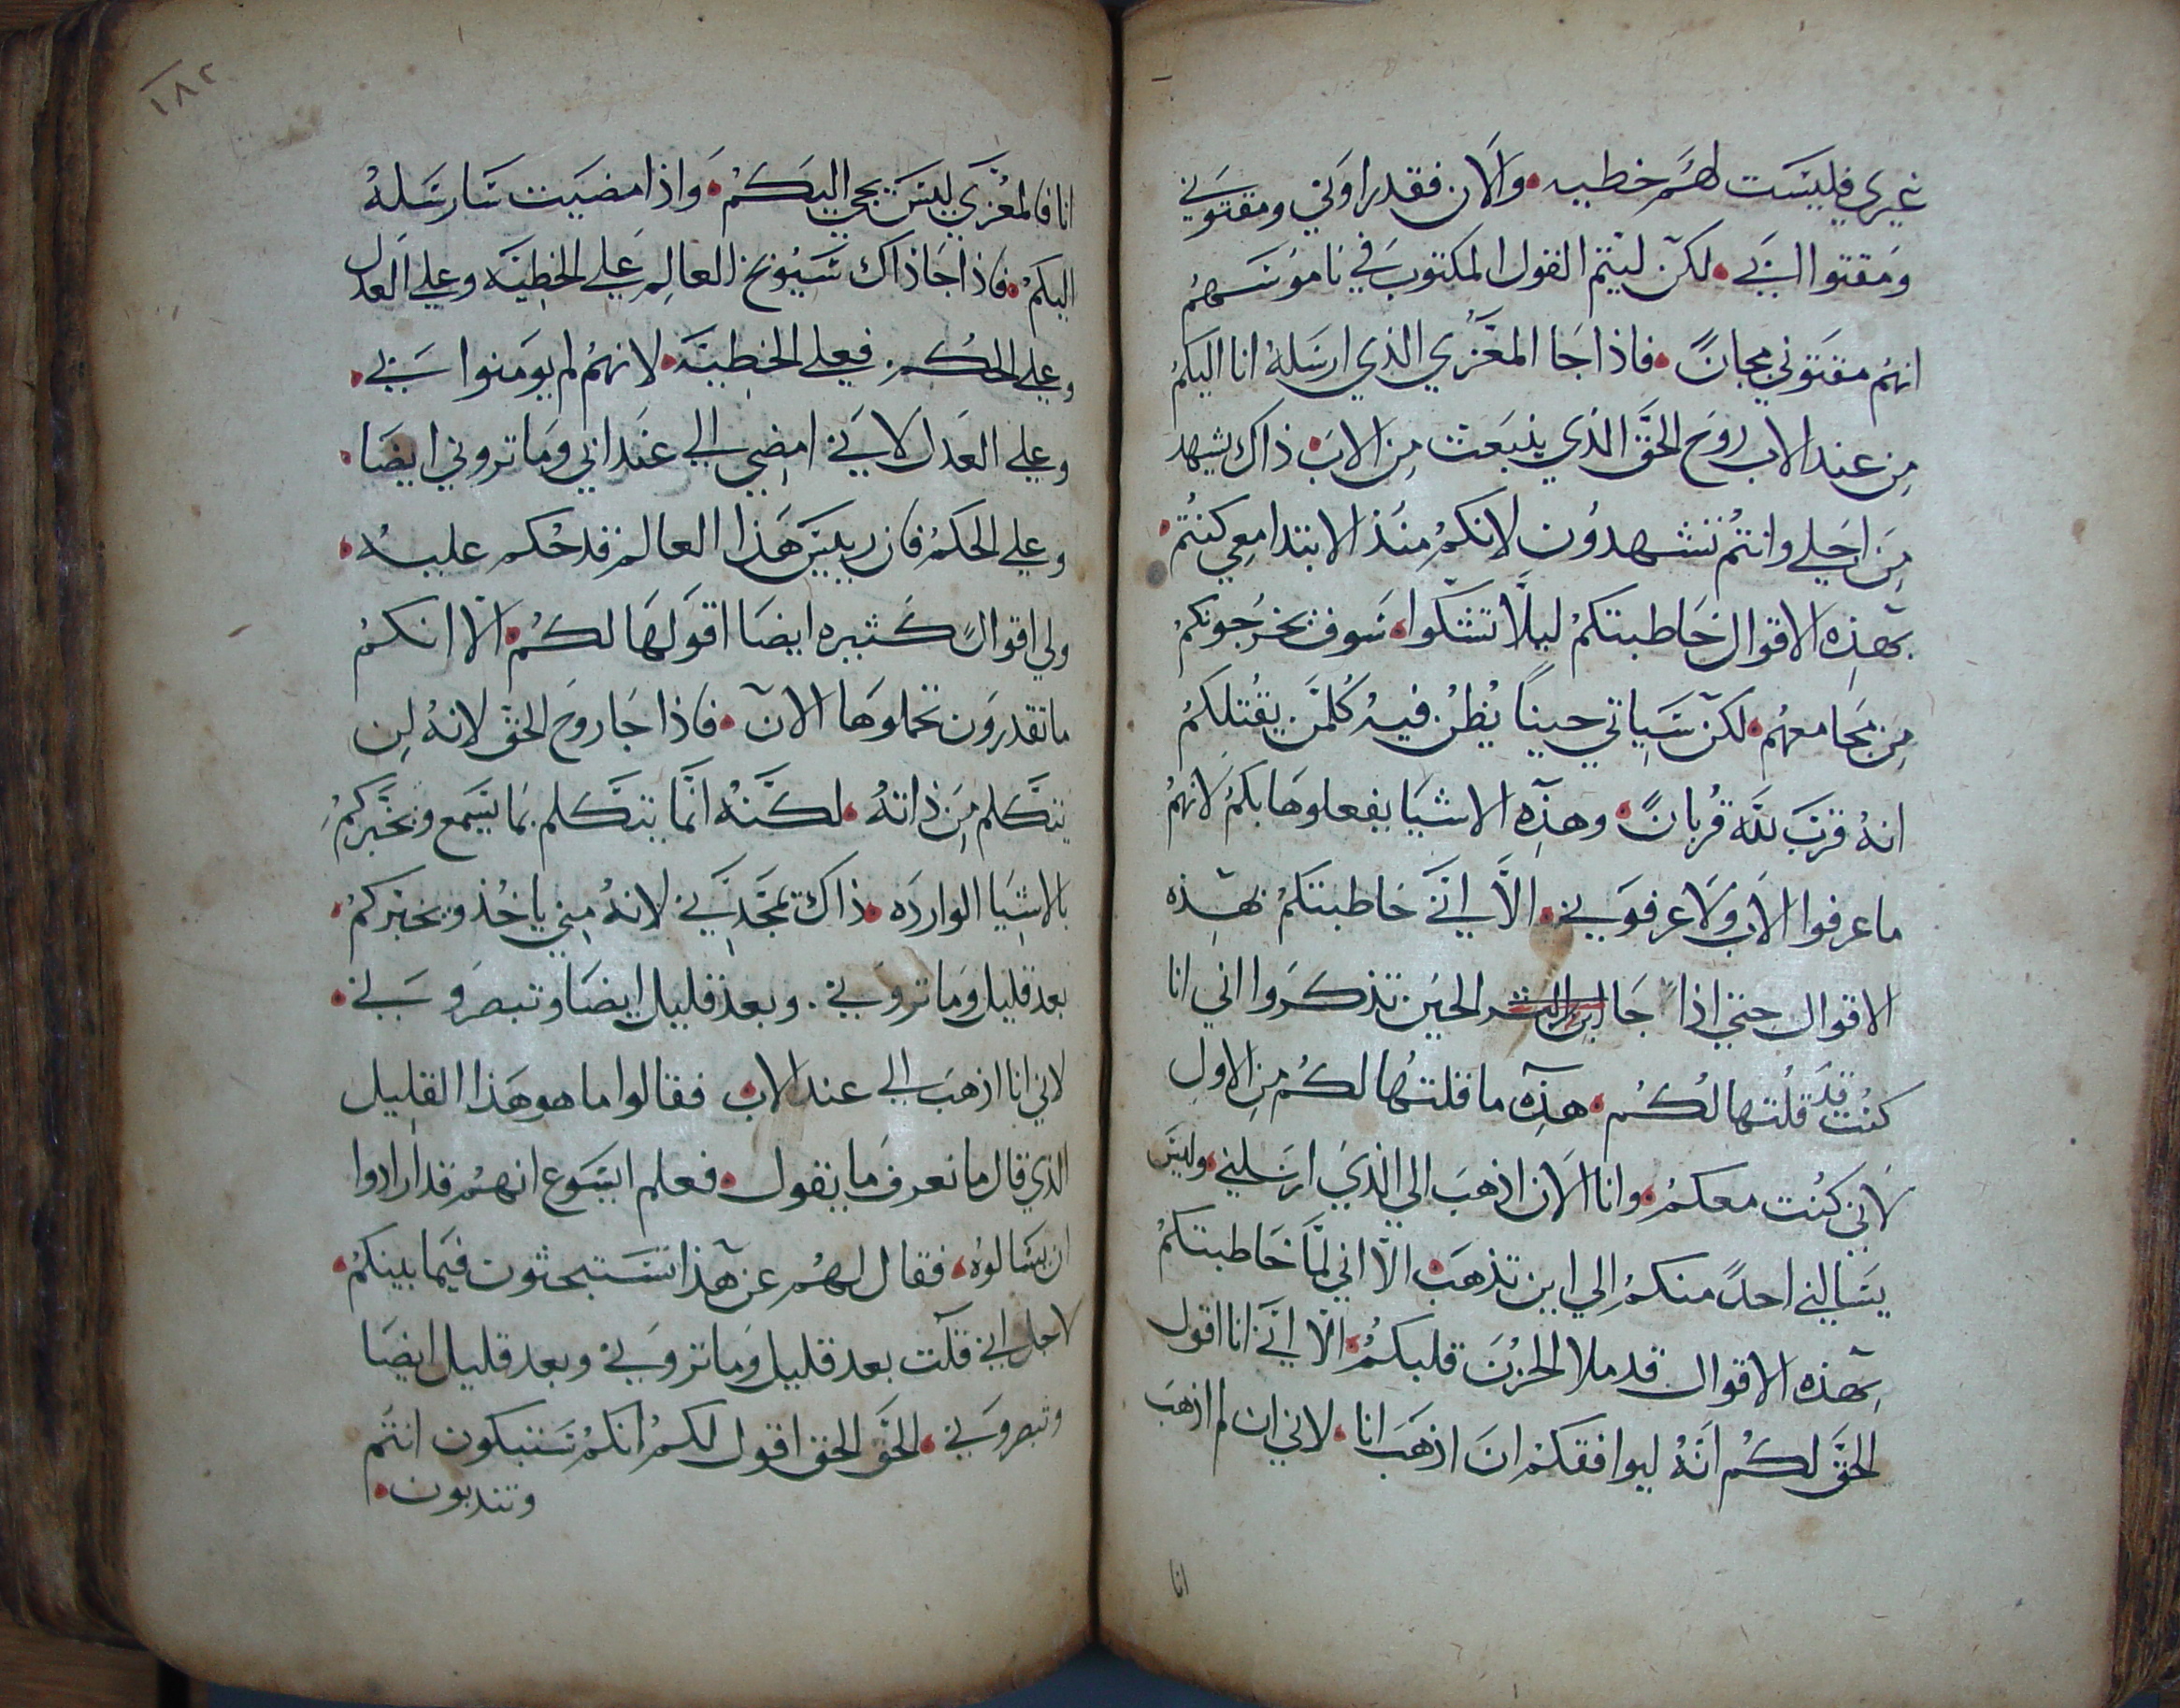 غيري فليست لهم خطيه والان فقد راوني ومقتوني
ومقتوا ابي لكن ليتم القول المكتوب في ناموسهم
انهم مقتوني مجانً فاذا جا المعزي الذي ارسله انا اليكم
من عند الاب روح الحق الذي ينبعث من الاب ذاك يشهد
من اجلي وانتم تشهدون لانكم منذ الابتدا معي كنتم
بهذه الاقوال خاطبتكم ليلا تشكوا سوف يخرجونكم
من مجامعهم لكن سياتي حيناً يظن فيه كلمن يقتلكم
انه قرب لله قربانً وهذه الاشيا يفعلوها بكم لانهم
ما عرفوا الاب ولا عرفوني الا انني خاطبتكم بهذه
الاقوال حتي اذا جا الحين تذكروا اني انا
كنت قد قلتها لكم هذه ما قلتها لكم من الاول
لاني كنت معكم وانا الان اذهب الي الذي ارسلني وليس
يسالني احدً منكم الي اين تذهب الا اني لما خاطبتكم
بهذه الاقوال قد ملا الحزن قلبكم الا انني انا اقول
الحق لكم انه ليوافقكم ان اذهب انا لاني ان لم اذهب
انا
١٨٢
انا فالمعزي ليس يجي اليكم واذا مضيت سارسله
اليكم فاذا جا ذاك سيوبخ العالم علي الخطيه وعلي العدل
وعلي الحكم فعلي الخطيه لانهم لم يومنوا بي
وعلي العدل لانني امضي الي عند ابي وما تروني ايضا
وعلي الحكم فان رييس هذا العالم قد حكم عليه
ولي اقوالً كثيره ايضا اقولها لكم الا انكم
ما تقدرون تحملوها الان فاذا جا روح الحق لانه لن
يتكلم من ذاته لكنه انما يتكلم بما يسمع ويخبركم
بالاشيا الوارده ذاك يمجدني لانه مني ياخذ ويخبركم
بعد قليل وما تروني وبعد قليل ايضا وتبصروني
لاني انا اذهب الي عند الاب فقالوا ما هو هذا القليل
الذي قال ما نعرف ما يقول فعلم ايسوع انهم قد ارادوا
ان يسالوه فقال لهم عن هذا تستبحثون فيما بينكم
لاجل اني قلت بعد قليل وما تروني وبعد قليل ايضا
وتبصروني الحق الحق اقول لكم انكم ستبكون انتم
وتندبون